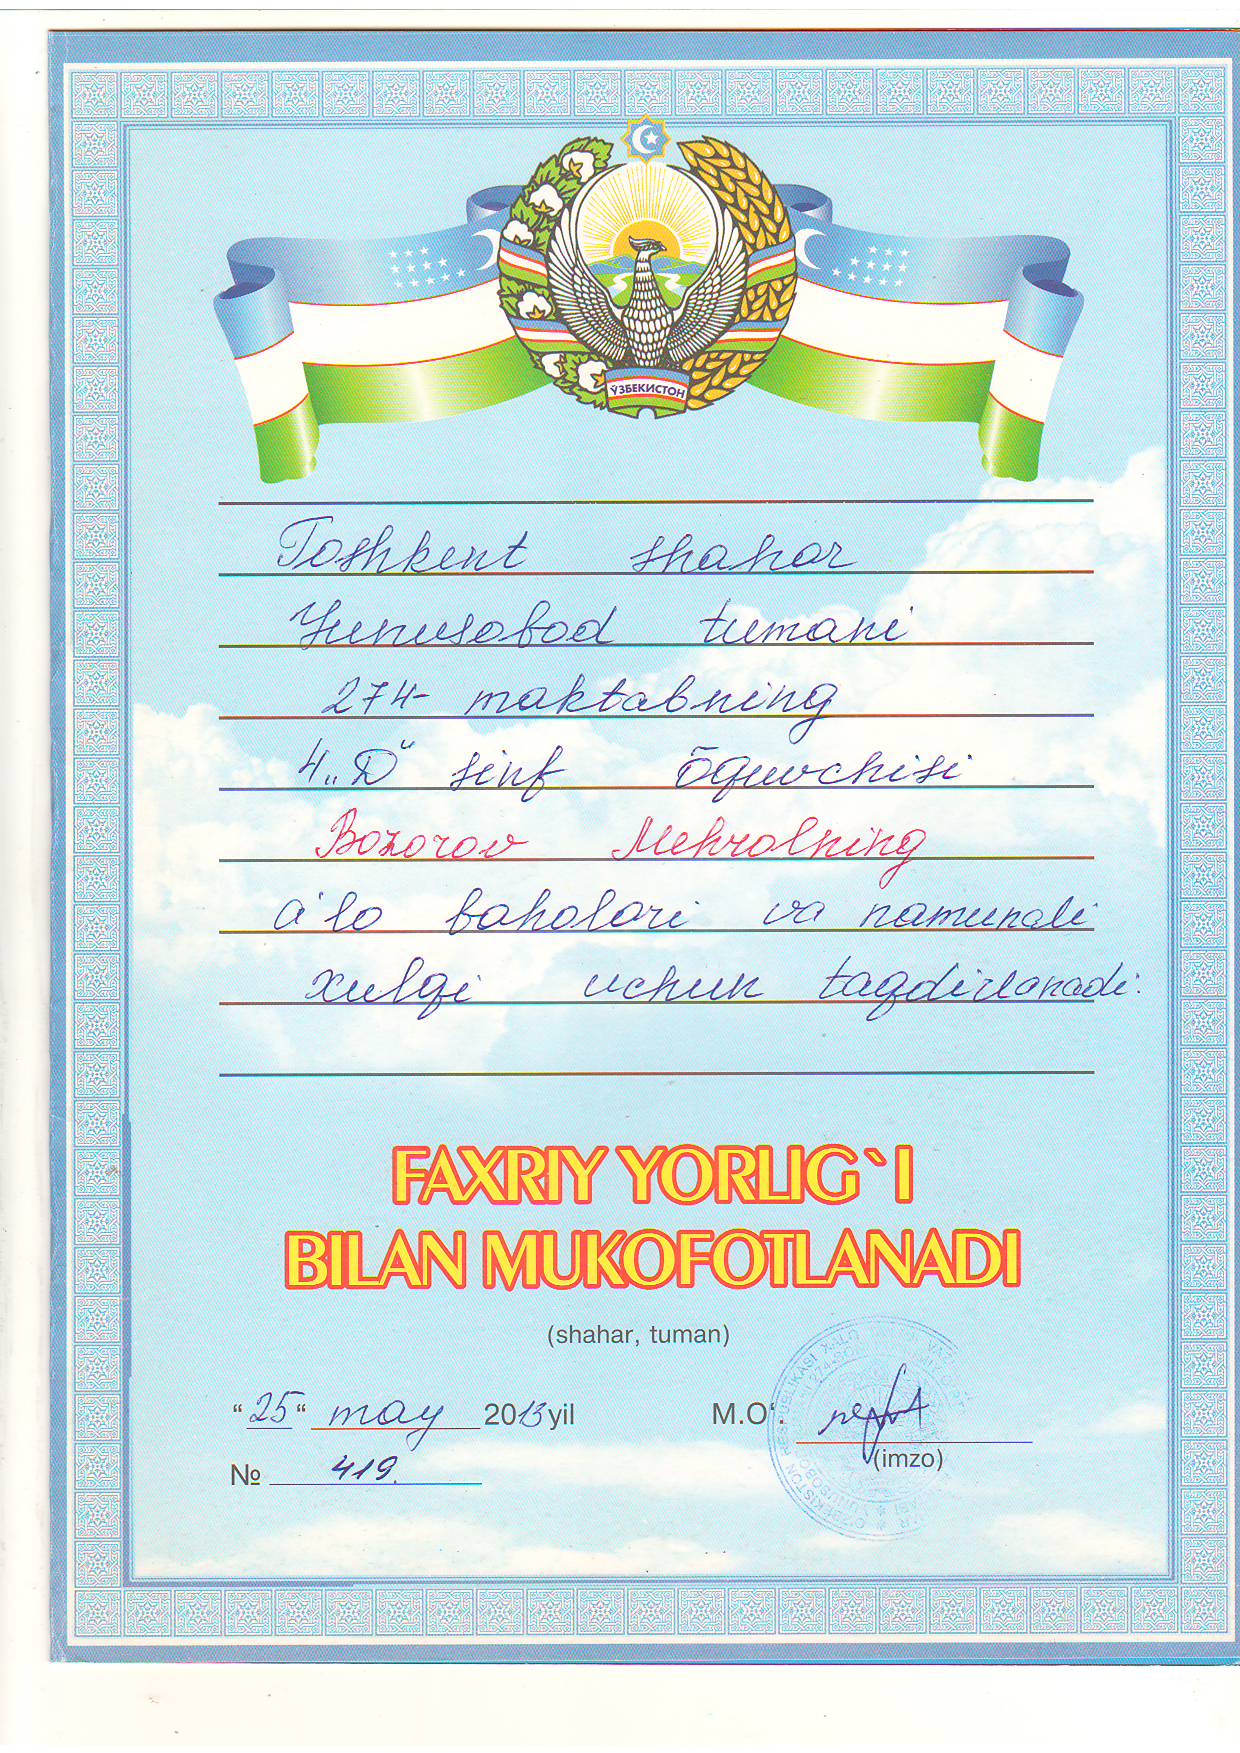 ЎЗБЕКИСТОН
Toshkent shahar
Yunusobod tumani
274- maktabning
4 „D“ sinf õquvchisi
Bozorov Mehrolning
a'lo baholari va namunali
xulqi uchun taqdirlanadi.
FAXRIY YORLIG`I
BILAN MUKOFOTLANADI
(shahar, tuman)
“ 25 “ may 2013 yil M.O‘.
(imzo)
№ 419.